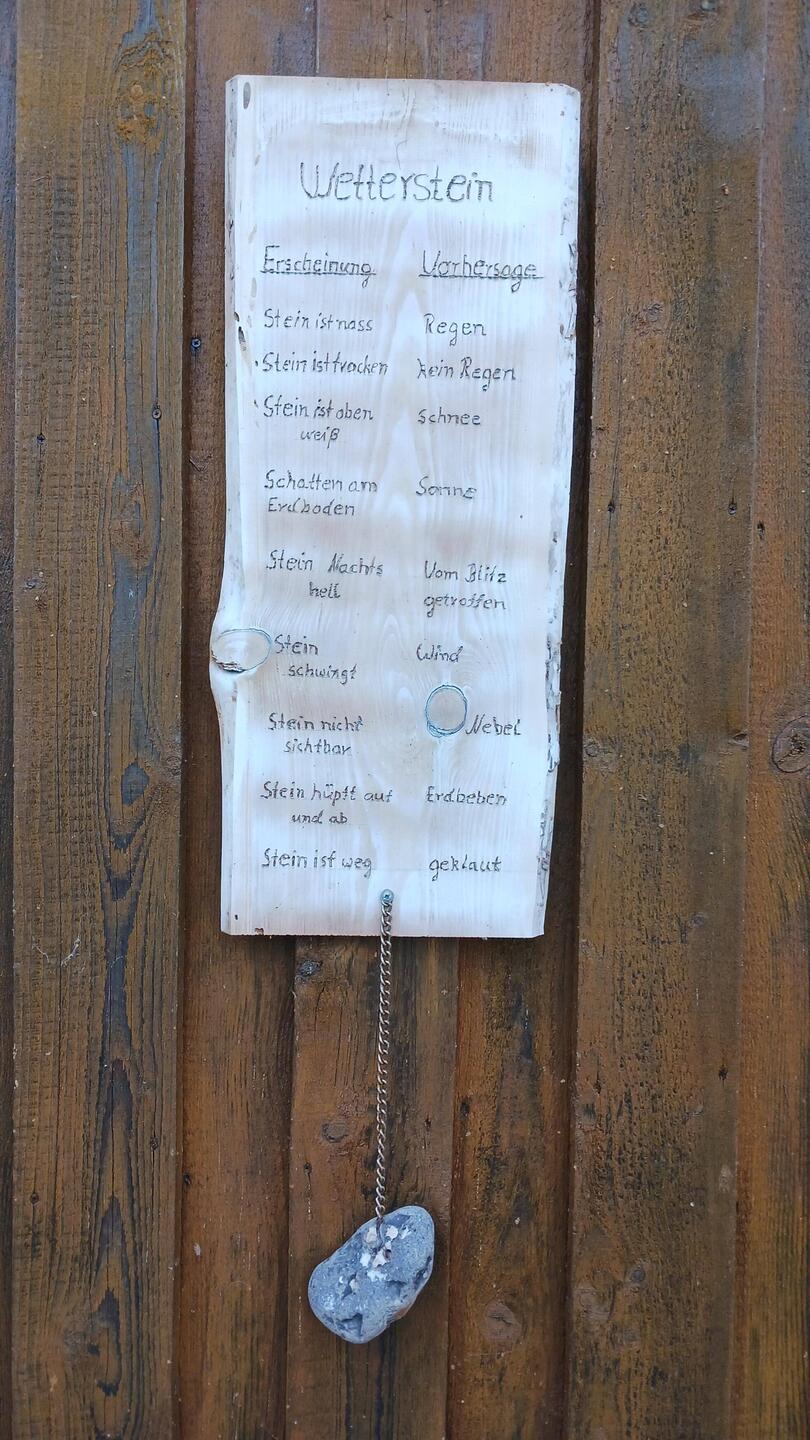 Wetterstein
Erscheinung Vorhersage
Stein ist nass Regen
Stein ist trocken kein Regen
Stein ist oben Schnee
weiß
Schatten am Sonne
Erdboden
Stein Nachts Vom Blitz
hell getroffen
Stein Wind
schwingt
Stein nicht Nebel
sichtbar
Stein hüpft auf Erdbeben
und ab
Stein ist weg geklaut